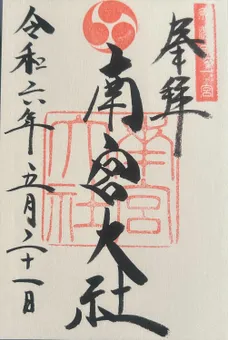 奉拝
南宮大社
南宮
大社
令和六年五月二十一日